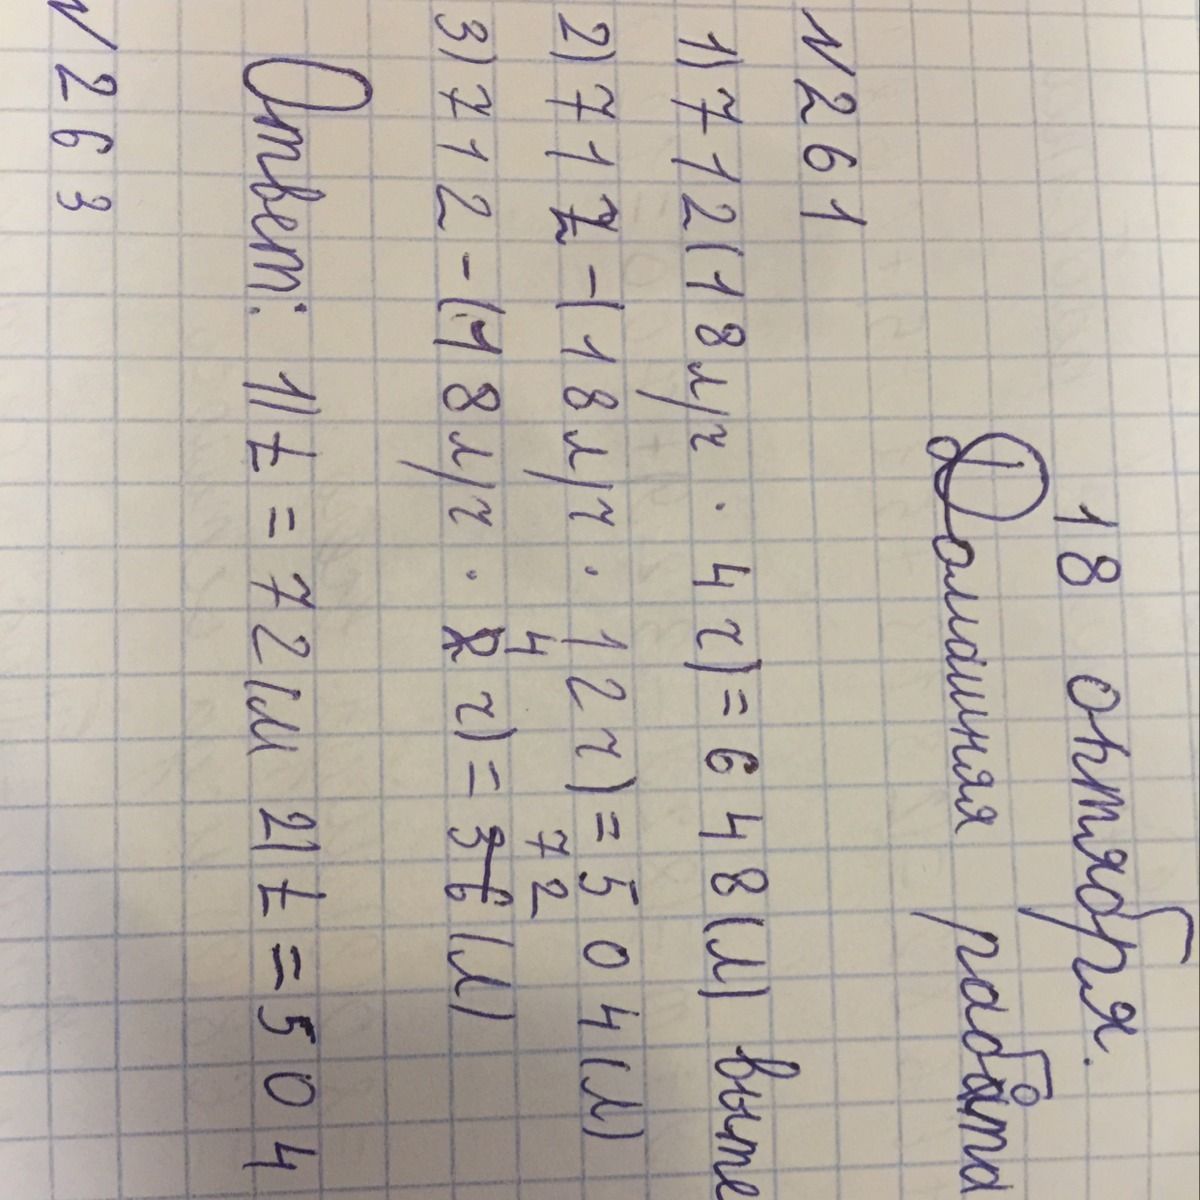 18 октября.
Домашняя работа
№261
1) 712(18л/ч · 4ч)=648(л) выте
2) 712-(18л/ч · 12ч)=504(л)
4 72
3) 712-(18л/ч · ч)= (л)
Ответ: 1) t=72(л) 2) t=504
№263